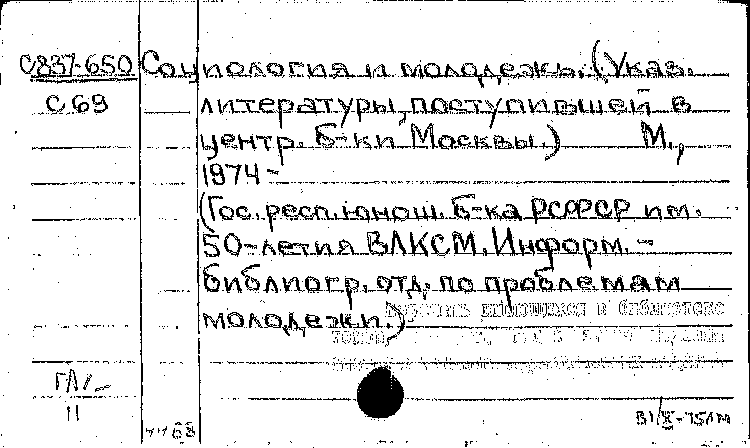 С837-650 Социология и молодежь. (Указ.
С69 литературы, поступившей в
центр. б-ки Москвы.) М.,
1974-
(Гос. респ. юнош. б-ка РСФСР им.
50-летия ВЛКСМ. Информ.-
библиогр. отд. по проблемам
молодежи.)
11